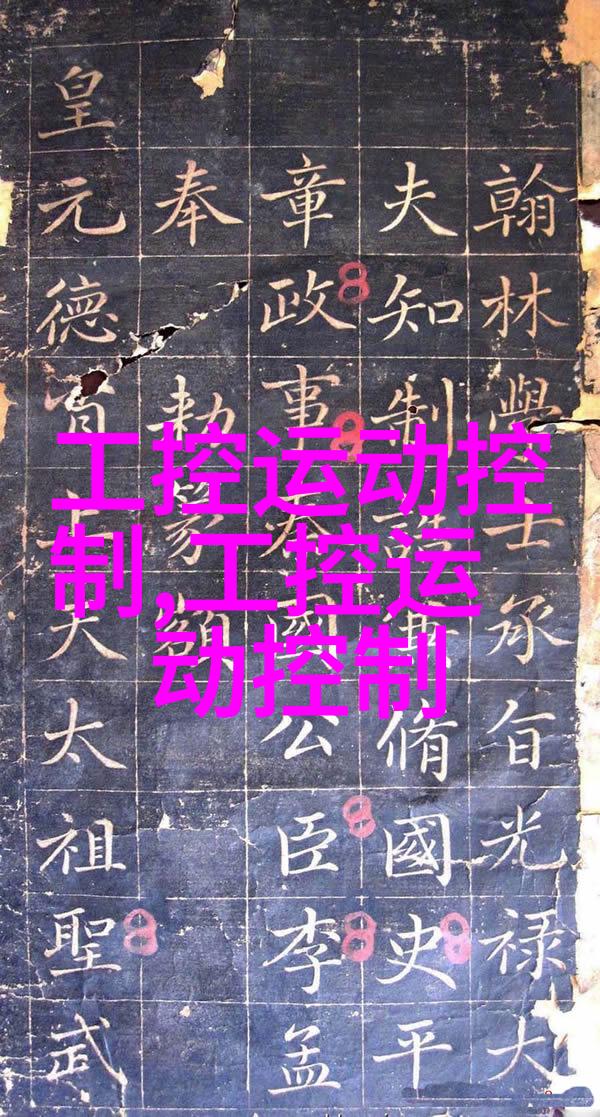 工控运动控
制,工控运
动控制
翰林學士承旨光禄大
夫知制誥兼脩國史平
章政事秦國公臣李孟
奉勅篆額
皇元德天太祖聖武